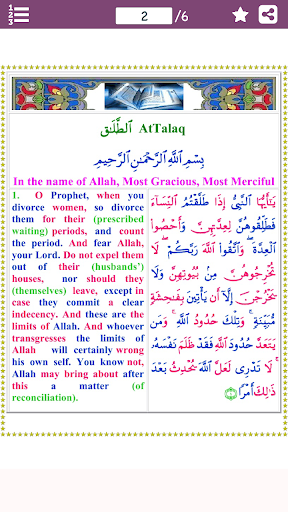 1
2
3
2 /6
الطَّلَاق AtTalaq
بِسْمِ ٱللَّهِ ٱلرَّحْمَٰنِ ٱلرَّحِيمِ
In the name of Allah, Most Gracious, Most Merciful
1. O Prophet, when you
divorce women, so divorce
them for their (prescribed
waiting) periods, and count
the period. And fear Allah,
your Lord. Do not expel them
out of their (husbands’)
houses, nor should they
(themselves) leave, except in
case they commit a clear
indecency. And these are the
limits of Allah. And whoever
transgresses the limits of
Allah will certainly wrong
his own self. You know not,
Allah may bring about after
this a matter (of
reconciliation).
يَٰٓأَيُّهَا ٱلنَّبِىُّ إِذَا طَلَّقْتُمُ ٱلنِّسَآءَ
فَطَلِّقُوهُنَّ لِعِدَّتِهِنَّ وَأَحْصُوا۟
ٱلْعِدَّةَ ۖ وَٱتَّقُوا۟ ٱللَّهَ رَبَّكُمْ ۖ لَا
تُخْرِجُوهُنَّ مِنۢ بُيُوتِهِنَّ وَلَا
يَخْرُجْنَ إِلَّآ أَن يَأْتِينَ بِفَٰحِشَةٍ
مُّبَيِّنَةٍ ۚ وَتِلْكَ حُدُودُ ٱللَّهِ ۚ وَمَن
يَتَعَدَّ حُدُودَ ٱللَّهِ فَقَدْ ظَلَمَ نَفْسَهُۥ
ۚ لَا تَدْرِى لَعَلَّ ٱللَّهَ يُحْدِثُ بَعْدَ
ذَٰلِكَ أَمْرًا ١